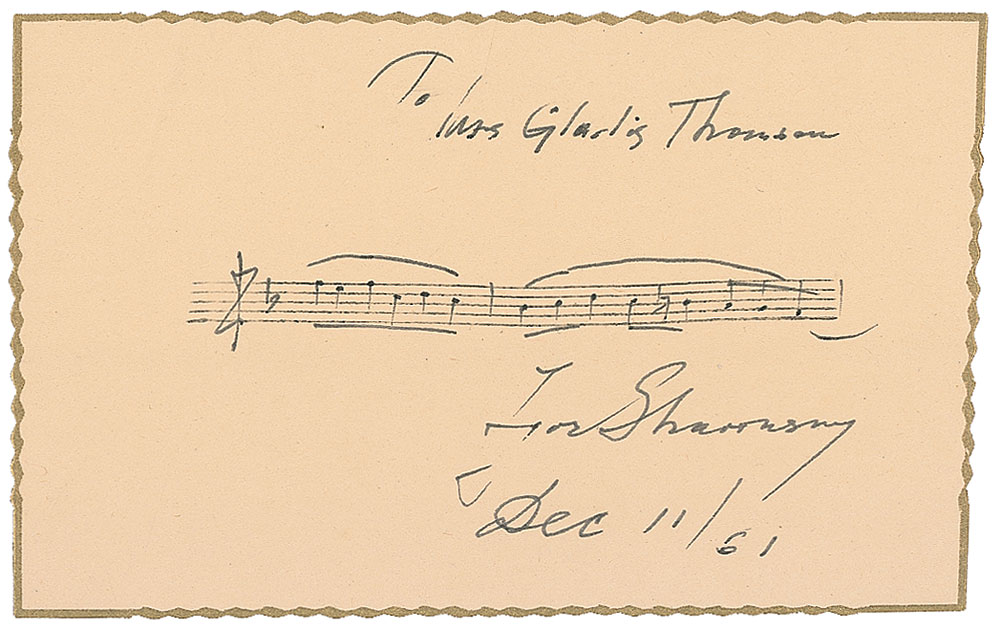 To
Mrs Gladis Thomson
Igor Strawinsky
Dec 11/61